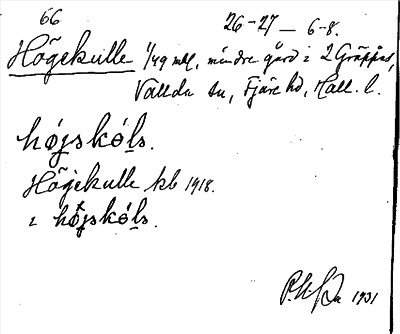 66 26-27 — 6-8.
Högekulle 1/49 mtl, mindre gård i 2 Gräppås,
Vallda sn, Fjäre hd, Hall. l.
højskóls.
Högekulle kb 1918.
i højskóls.
1931